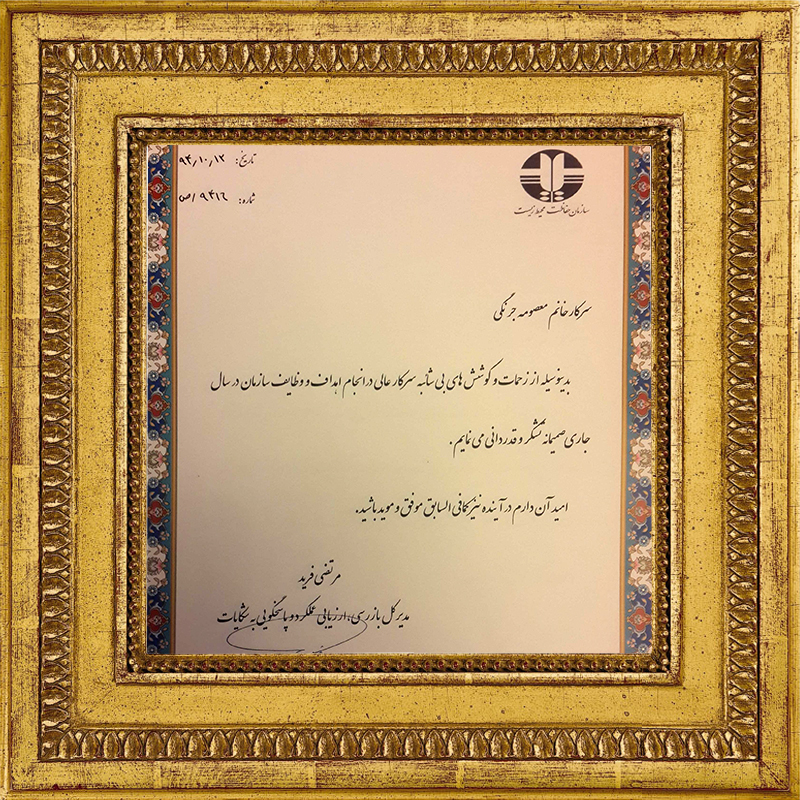 سازمان حفاظت محیط زیست
تاریخ: ۹۴/۱۰/۱۲
شماره: ۹۴۱۶/ص
سرکار خانم معصومه جرنگی
بدینوسیله از زحمات و کوشش های بی شائبه سرکار عالی در انجام اهداف و وظایف سازمان در سال
جاری صمیمانه تشکر و قدردانی می نمایم.
امید آن دارم در آینده نیز کمافی السابق موفق و موید باشید.
مرتضی فرید
مدیر کل بازرسی، ارزیابی عملکرد و پاسخگویی به شکایات